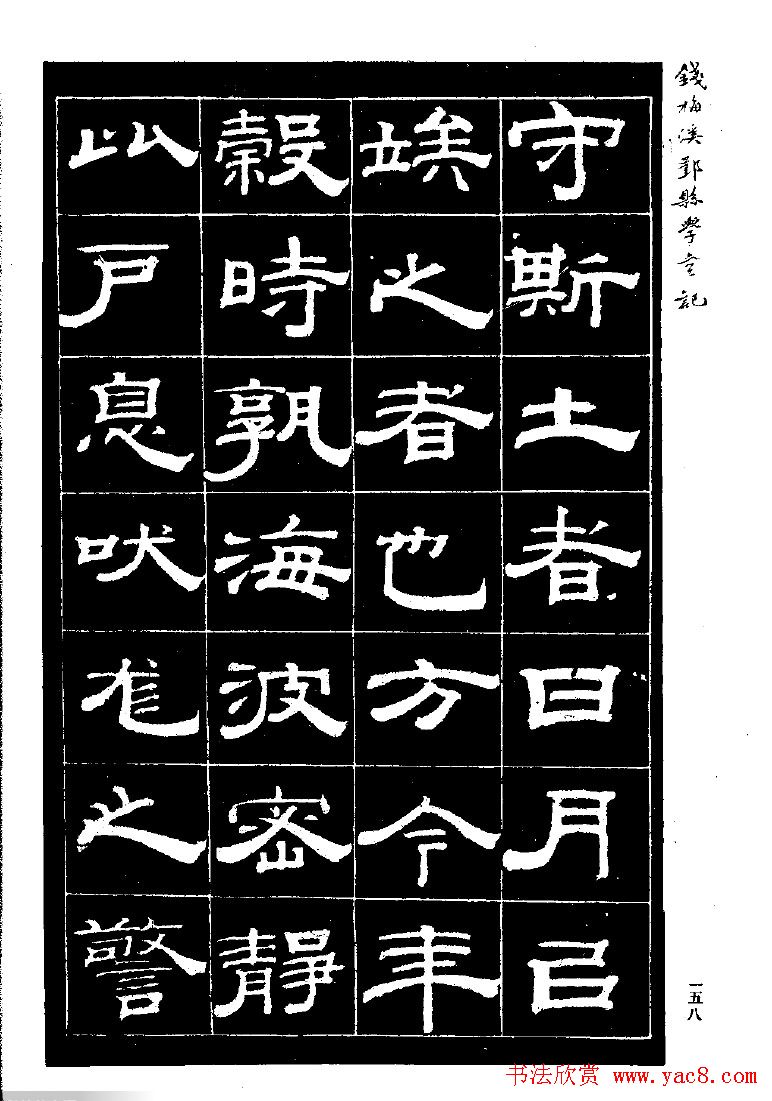 錢梅溪鄞縣學重記
守斯土者日月以
竢之者也方今年
穀時孰海波密靜
比戶息吠尨之警
一五八
书法欣赏 www.yac8.com